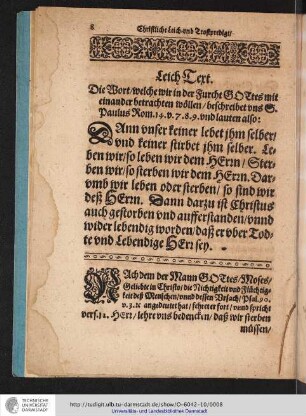 8 Christliche Leich-und Trostpredigt/
Leich Text.
Die Wort/welche wir in der Furcht GOttes mit
einander betrachten wöllen/ beschreibet vns S.
Paulus Rom. 14. v. 7. 8. 9. vnd lauten also:
DAnn vnser keiner lebet jhm selber/
vnd keiner stirbet jhm selber. Le-
ben wir/ so leben wir dem HErrn/ Ster-
ben wir/ so sterben wir dem HErrn. Dar-
umb wir leben oder sterben/ so sind wir
deß HErrn. Dann darzu ist Christus
auch gestorben vnd aufferstanden/ vnnd
wider lebendig worden/ daß er vber Tod-
te vnd Lebendige HErr sey.
NAch dem der Mann GOttes/ Moses/
Geliebte in Christo/ die Nichtigkeit vnd Flüchtig-
keit deß Menschen/ vnnd dessen Vrsach/ Psal. 90.
angedeutet hat/ fehret er fort/ vnnd spricht
vers. 12. HErr/ lehre vns bedencken/ daß wir sterben
müssen/
TECHNISCHE
UNIVERSITÄT
DARMSTADT
http://tudigit.ulb.tu-darmstadt.de/show/O-6042-10/0008
Universitäts- und Landesbibliothek Darmstadt